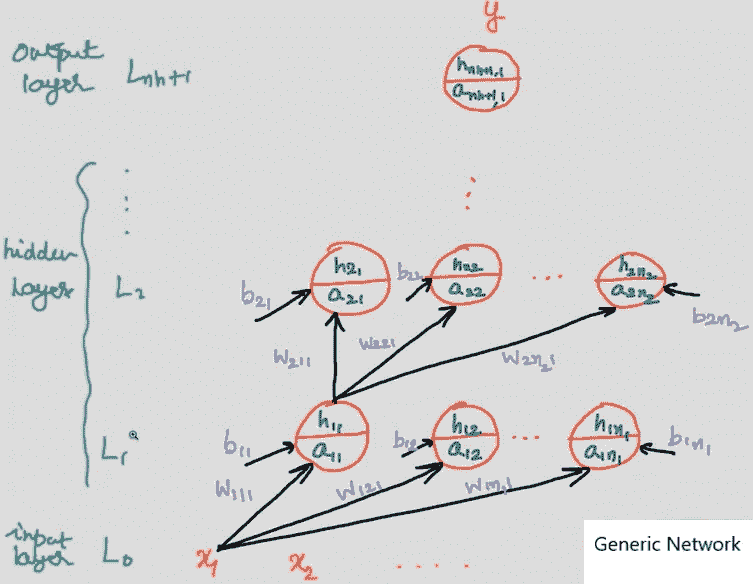 y
output layer L_{nh+1} h_{nh+1,1} a_{nh+1,1}
⋮
hidden layer
L₂ b₂₁ h₂₁ a₂₁ b₂₂ h₂₂ a₂₂ ... h_{2n₂} a_{2n₂} b_{2n₂}
W₂₁₁ W₂₂₁ W_{2n₂1}
L₁ b₁₁ h₁₁ a₁₁ b₁₂ h₁₂ a₁₂ ... h_{1n₁} a_{1n₁} b_{1n₁}
W₁₁₁ W₁₂₁ W_{1n₁1}
input layer L₀ x₁ x₂ ....
Generic Network